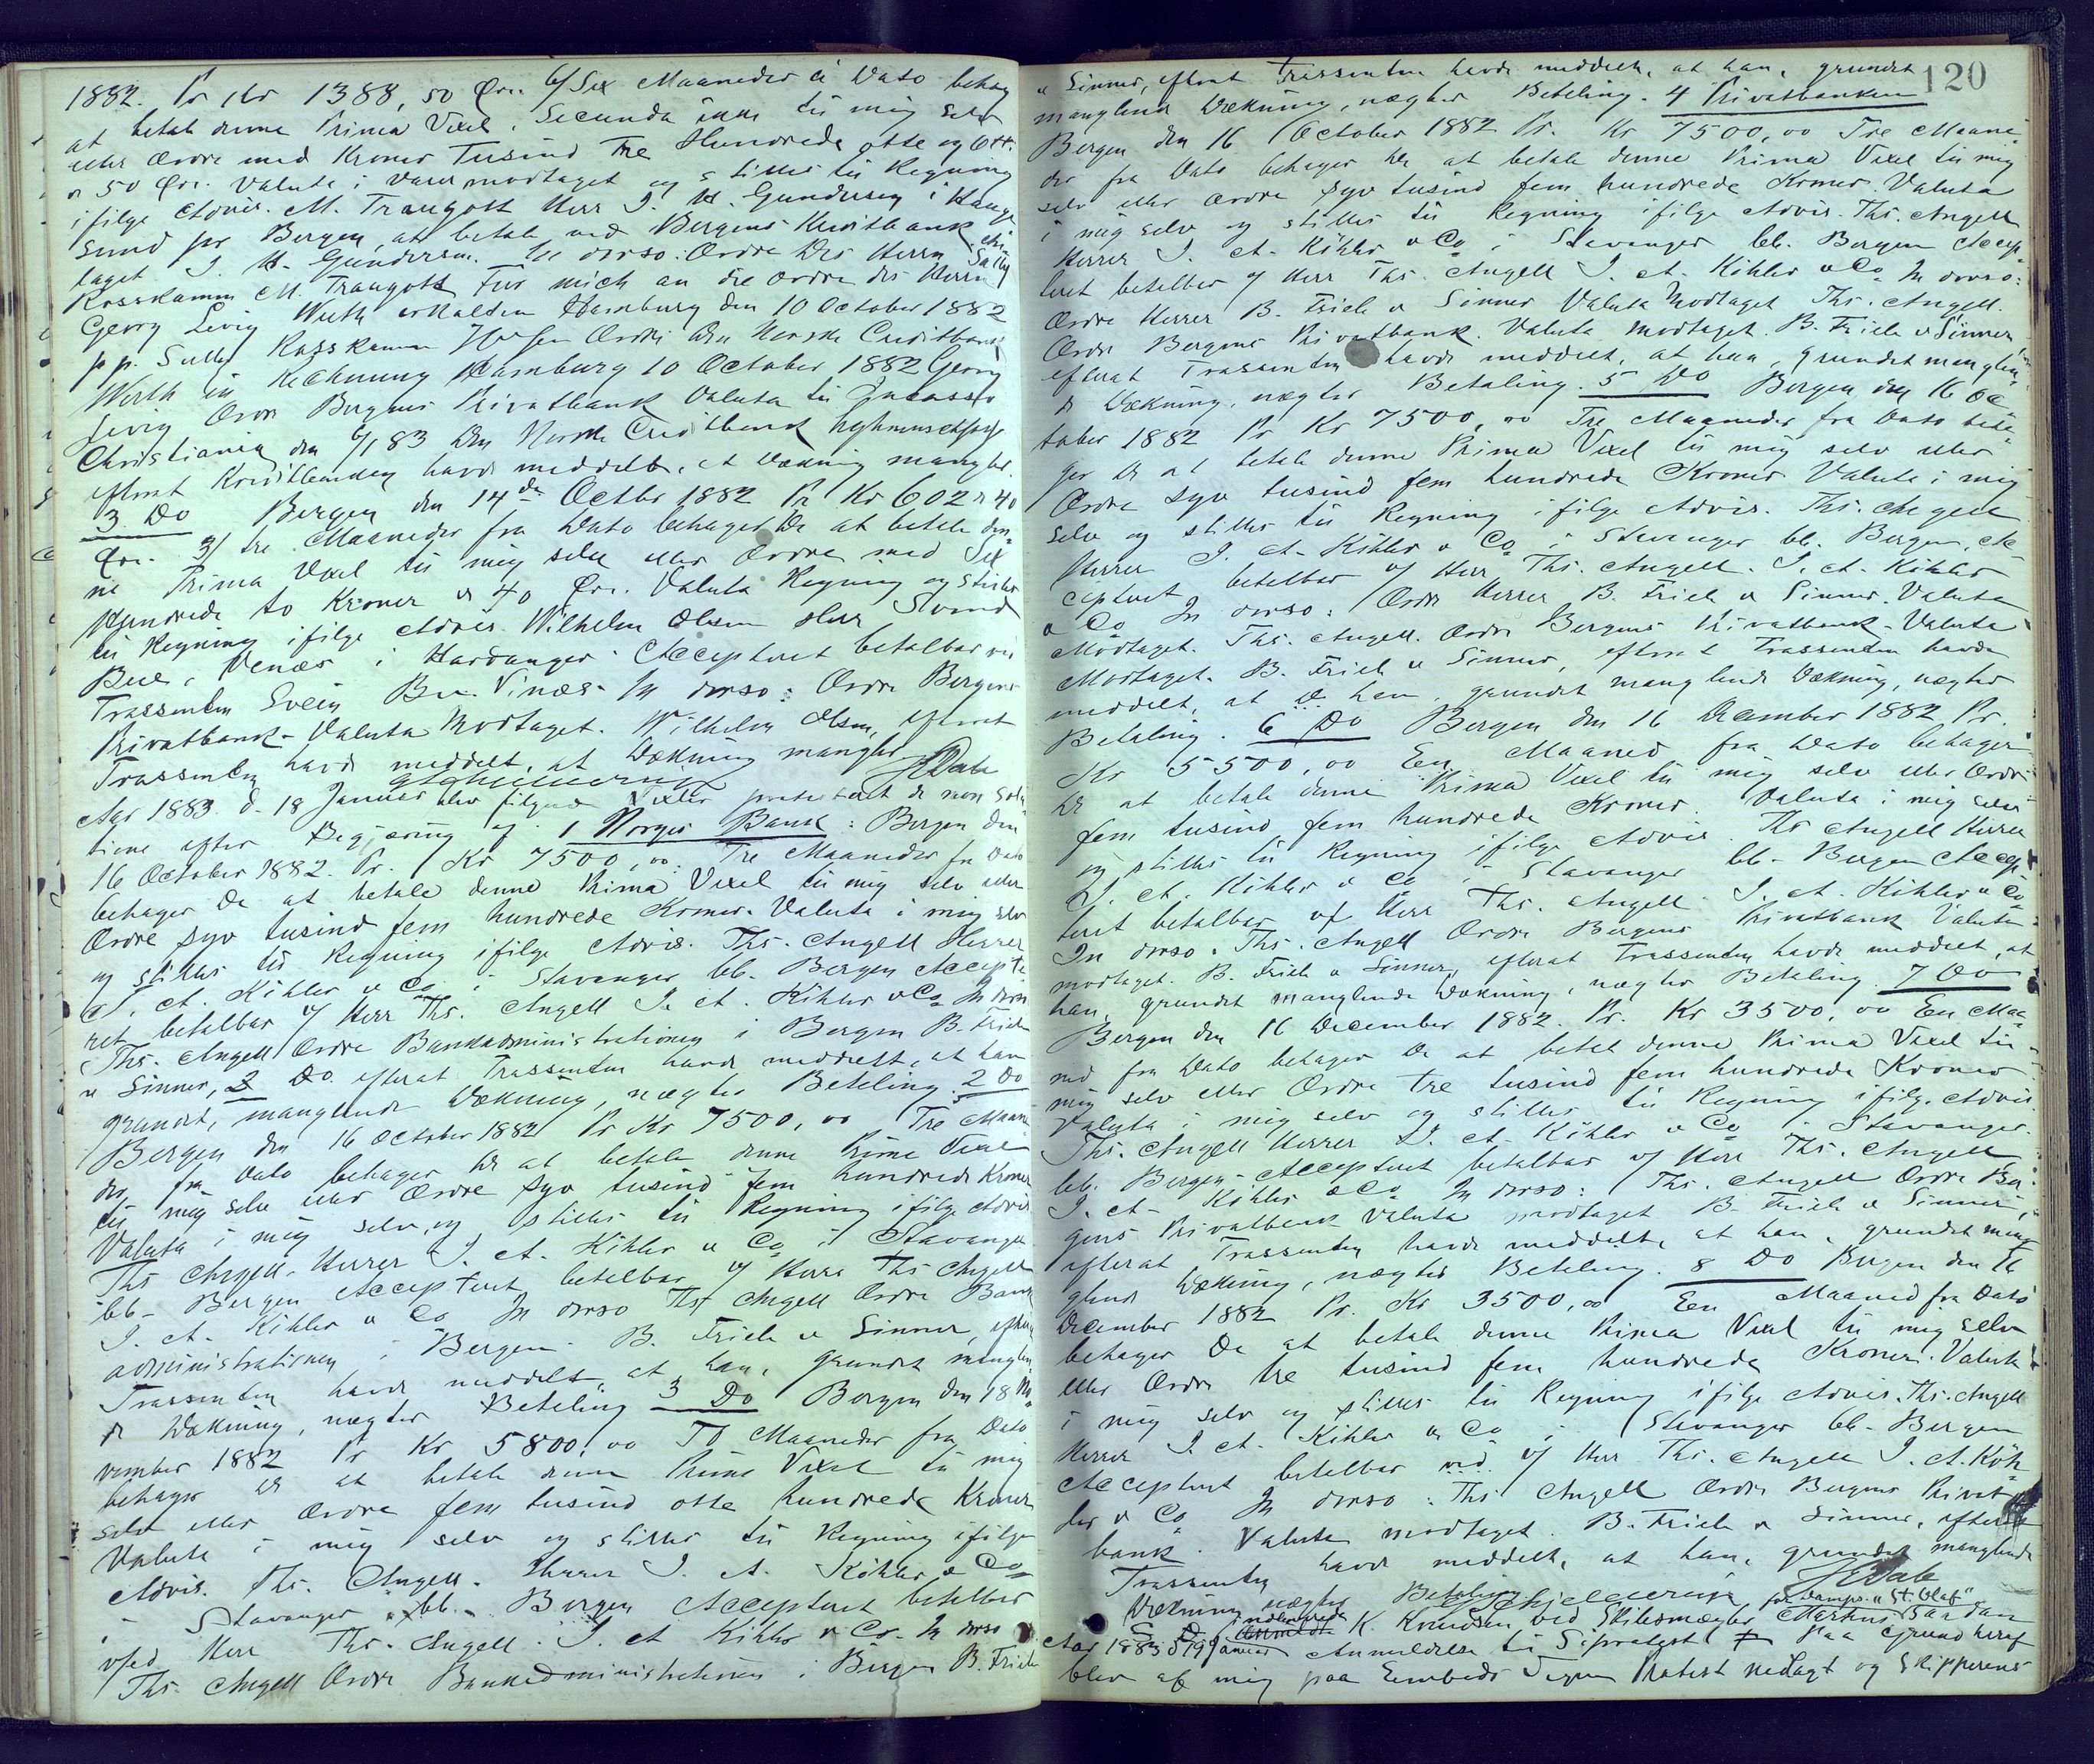 1882. Pr Kr 1388,50 Øre 6/Sex Maaneder à Dato behag
at betale denne Prima Vexel, Secunda ikke til mig selv
eller Ordre med Kroner Tusind Tre Hundrede otte og Ott.
& 50 Øre. Valuta i Varer modtaget og stilles til Regning
ifølge Advis. M. Traugott Herr J. H. Gundersen i Hauge
sund pr Bergen, at betale ved Bergens Kreditbank An
taget J. H. Gundersen. In dorso: Ordre des Herrn Sally
Rosskamm M. Traugott Für mich an die Ordre des Herrn
Georg Levig Werth erhalten Hamburg den 10 October 1882
pp. Sally Rosskamm Ordre den Norske Creditbank
Werth in Rechnung Hamburg 10 October 1882 Georg
Levig Ordre Bergens Privatbank Valuta til Incasso
Christiania den 6/1 83 Den Norske Creditbank
efterat Kreditbanken havde meddelt, at Dækning mangler.
3 Do Bergen den 14de Octbr 1882 Pr Kr 602 & 40
Øre. 3/ tre Maaneder fra Dato behager De at betale den-
ne Prima Vexel til mig selv eller Ordre med Sex
Hundrede to Kroner & 40 Øre. Valuta Regning og stilles
til Regning ifølge Advis Wilhelm Olsen Herr Svend
Bue, Venæs i Hardanger. Accepteret betalbar
Trassenten Svein Bu. Vinæs. In dorso: Ordre Bergens
Privatbank. Valuta Modtaget. Wilhelm Olsen, efterat
Trassenten havde meddelt, at Dækning mangler
Aar 1883 d. 18 Januar blev følgende Vexler protesteret de non solu-
tione efter Begjæring af 1 Norges Bank: Bergen den
16 October 1882. Pr. Kr 7500,00. Tre Maaneder fra Dato
behager De at betale denne Prima Vexel til mig selv eller
Ordre syv tusind fem hundrede Kroner. Valuta i mig selv
og stilles til Regning ifølge Advis. Ths. Angell Herrer
J. A. Köhler & Co i Stavanger bb. Bergen Accepte
ret betalbar af Herr Ths. Angell J. A. Köhler & Co In dorso
Ths. Angell Ordre Bankadministrationen i Bergen B. Friele
& Sønner, 2 Do. efterat Trassenten havde meddelt, at han
grundet, manglende Dækning, nægter Betaling. 2 Do
Bergen den 16 October 1882 Pr Kr 7500,00 Tre Maane
der fra Dato behager De at betale denne Prima Vexel
til mig selv eller Ordre syv tusind fem hundrede Kroner
Valuta i mig selv, og stilles til Regning ifølge Advis
Ths Angell. Herrer J. A. Köhler & Co i Stavanger
bb. Bergen Accepteret betalbar af Herr Ths Angell
J. A. Köhler & Co In dorso Ths Angell Ordre Bank
administrationen i Bergen B. Friele & Sønner, efterat
Trassenten havde meddelt, at han, grundet manglen
de Dækning, nægter Betaling 3 Do Bergen den 18 No
vember 1882 Pr Kr 5800,00 To Maaneder fra Dato
behager De at betale denne Prima Vexel til mig
selv eller Ordre fem tusind otte hundrede Kroner
Valuta i mig selv og stilles til Regning ifølge
Advis. Ths. Angell. Herrer J. A. Köhler & Co
i Stavanger bb. Bergen Accepteret betalbar
ved Herr Ths. Angell. J. A Köhler & Co. In dorso
Ths. Angell Ordre Bankadministrationen i Bergen B. Friele
120
& Sønner, efterat Trassenten havde meddelt, at han, grundet
manglende Dækning, nægter Betaling. 4 Privatbanken
Bergen den 16 October 1882 Pr. Kr 7500,00 Tre Maane
der fra Dato behager De at betale denne Prima Vexel til mig
selv eller Ordre syv tusind fem hundrede Kroner. Valuta
i mig selv og stilles til Regning ifølge Advis. Ths. Angell
Herrer J. A. Köhler & Co i Stavanger bb. Bergen Accep-
teret betalbar af Herr Ths. Angell J. A. Köhler & Co In dorso:
Ordre Herrer B. Friele & Sønner Valuta Modtaget Ths. Angell.
Ordre Bergens Privatbank. Valuta modtaget. B. Friele & Sønner
efterat Trassenten havde meddelt, at han, grundet manglen
de Dækning, nægter Betaling. 5 Do Bergen den 16 Oc
tober 1882 Pr Kr 7500,00 Tre Maaneder fra Dato beha-
ger De at betale denne Prima Vexel til mig selv eller
Ordre syv tusind fem hundrede Kroner Valuta i mig
selv og stilles til Regning ifølge Advis. Ths. Angell
Herrer J. A. Köhler & Co i Stavanger bb. Bergen, Ac
cepteret betalbar af Herr Ths. Angell. J. A. Köhler
& Co In dorso: Ordre Herrer B. Friele & Sønner. Valuta
Modtaget. Ths. Angell. Ordre Bergens Privatbank. Valuta
Modtaget. B. Friele & Sønner, efterat Trassenten havde
meddelt, at han grundet manglende Dækning, nægter
Betaling. 6 Do Bergen den 16 December 1882 Pr.
Kr 5500,00 En Maaned fra Dato behager
De at betale denne Prima Vexel til mig selv eller Ordre
fem tusind fem hundrede Kroner. Valuta i mig selv
og stilles til Regning ifølge Advis. Ths Angell Herrer
J. A. Köhler & Co i Stavanger bb. Bergen Accep-
teret betalbar af Herr Ths. Angell J. A. Köhler & Co
In dorso. Ths. Angell Ordre Bergens Privatbank Valuta
modtaget. B. Friele & Sønner, efterat Trassenten havde meddelt, at
han, grundet manglende Dækning, nægter Betaling. 7 Do
Bergen den 16 December 1882. Pr. Kr 3500,00 En Maa-
ned fra Dato behager De at betale denne Prima Vexel til
mig selv eller Ordre tre tusind fem hundrede Kroner
Valuta i mig selv og stilles til Regning ifølge Advis.
Ths. Angell Herrer J. A. Köhler & Co i Stavanger.
bb. Bergen. Accepteret betalbar af Herr Ths. Angell
J. A. Köhler & Co In dorso: Ths. Angell Ordre Ber-
gens Privatbank Valuta modtaget B. Friele & Sønner,
efterat Trassenten havde meddelt, at han, grundet man-
glende Dækning, nægter Betaling. 8 Do Bergen den 16
December 1882 Pr. Kr 3500,00 Een Maaned fra Dato
behager De at betale denne Prima Vexel til mig selv
eller Ordre tre tusind fem hundrede Kroner. Valuta
i mig selv og stilles til Regning ifølge Advis. Ths. Angell
Herrer J. A. Köhler & Co i Stavanger bb. Bergen
Accepteret betalbar ved af Herr Ths. Angell J. A. Köh-
ler & Co In dorso: Ths Angell Ordre Bergens Privat-
bank. Valuta modtaget. B. Friele & Sønner, efterat
Trassenten havde meddelt, at han, grundet manglende
Dækning nægter Betaling
for Damps. "St. Olaf"
Aar 1883 d 19 Januar indleverede K. Knudsen ved Skibsmægler Martens
Anmeldelse til Søprotest. Paa Grund heraf
blev af mig paa Embeds Vegne Protest nedlagt og Skipperens